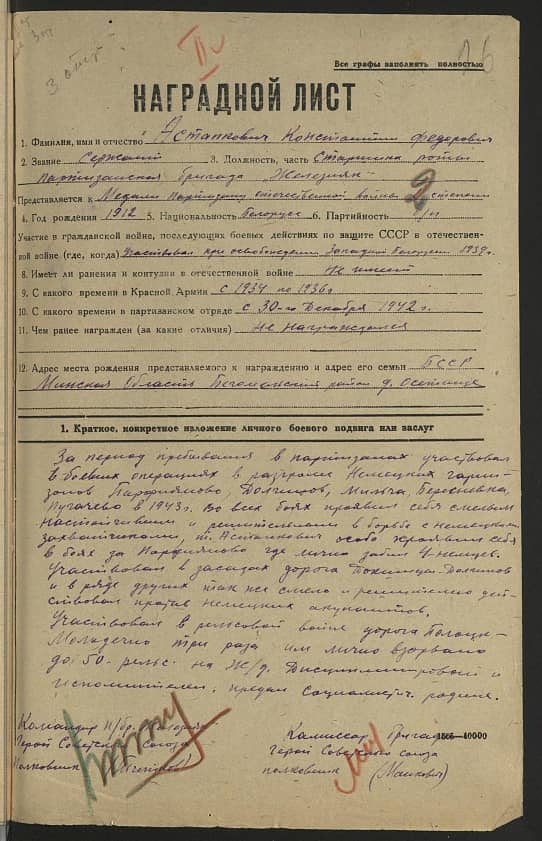 3 отр.
Все графы заполнять полностью
НАГРАДНОЙ ЛИСТ
1. Фамилия, имя и отчество Астапкович Константин Федорович
2. Звание Сержант 3. Должность, часть Старшина роты
партизанская бригада Железняк
Представляется к Медали партизану отечественной войны 2 степени
4. Год рождения 1912 5. Национальность белорус 6. Партийность б/п
Участие в гражданской войне, последующих боевых действиях по защите СССР в отечествен-
ной войне (где, когда) Участвовал при освобождении Западной Белорусии 1939г.
8. Имеет ли ранения и контузии в отечественной войне Не имеет
9. С какого времени в Красной Армии с 1934 по 1936г
10. С какого времени в партизанском отряде с 30-го Декабря 1942 г.
11. Чем ранее награжден (за какие отличия) Не награждался
12. Адрес места рождения представляемого к награждению и адрес его семьи БССР
Минская область Бегомльский район д. Осетище
1. Краткое, конкретное изложение личного боевого подвига или заслуг
За период пребывания в партизанах участвовал
в боевых операциях в разгроме Немецких гарни-
зонов Парфияново, Долгиново, Мильча, Березневка,
Пугачево в 1943г. Во всех боях проявил себя смелым
настойчивым и решительным в борьбе с немецкими
захватчиками, т. Астапкович особо проявил себя
в боях за Парфияново где лично забил 4 немцев.
Участвовал в засадах дорога Докшицы-Долгиново
и в ряде других так же смело и решительно дей-
ствовал против немецких окупантов.
Участвовал в рельсовой войне дорога Полоцк-
Молодечно три раза им лично взорвано
до 50-рельс. на Ж/д. Дисциплинирован и
исполнителен, предан Социалистич. родине.
Командир п/бригады
Герой Советского Союза
полковник
Комиссар бригады
1565—10000
герой Советского союза
полковник (Манкович)